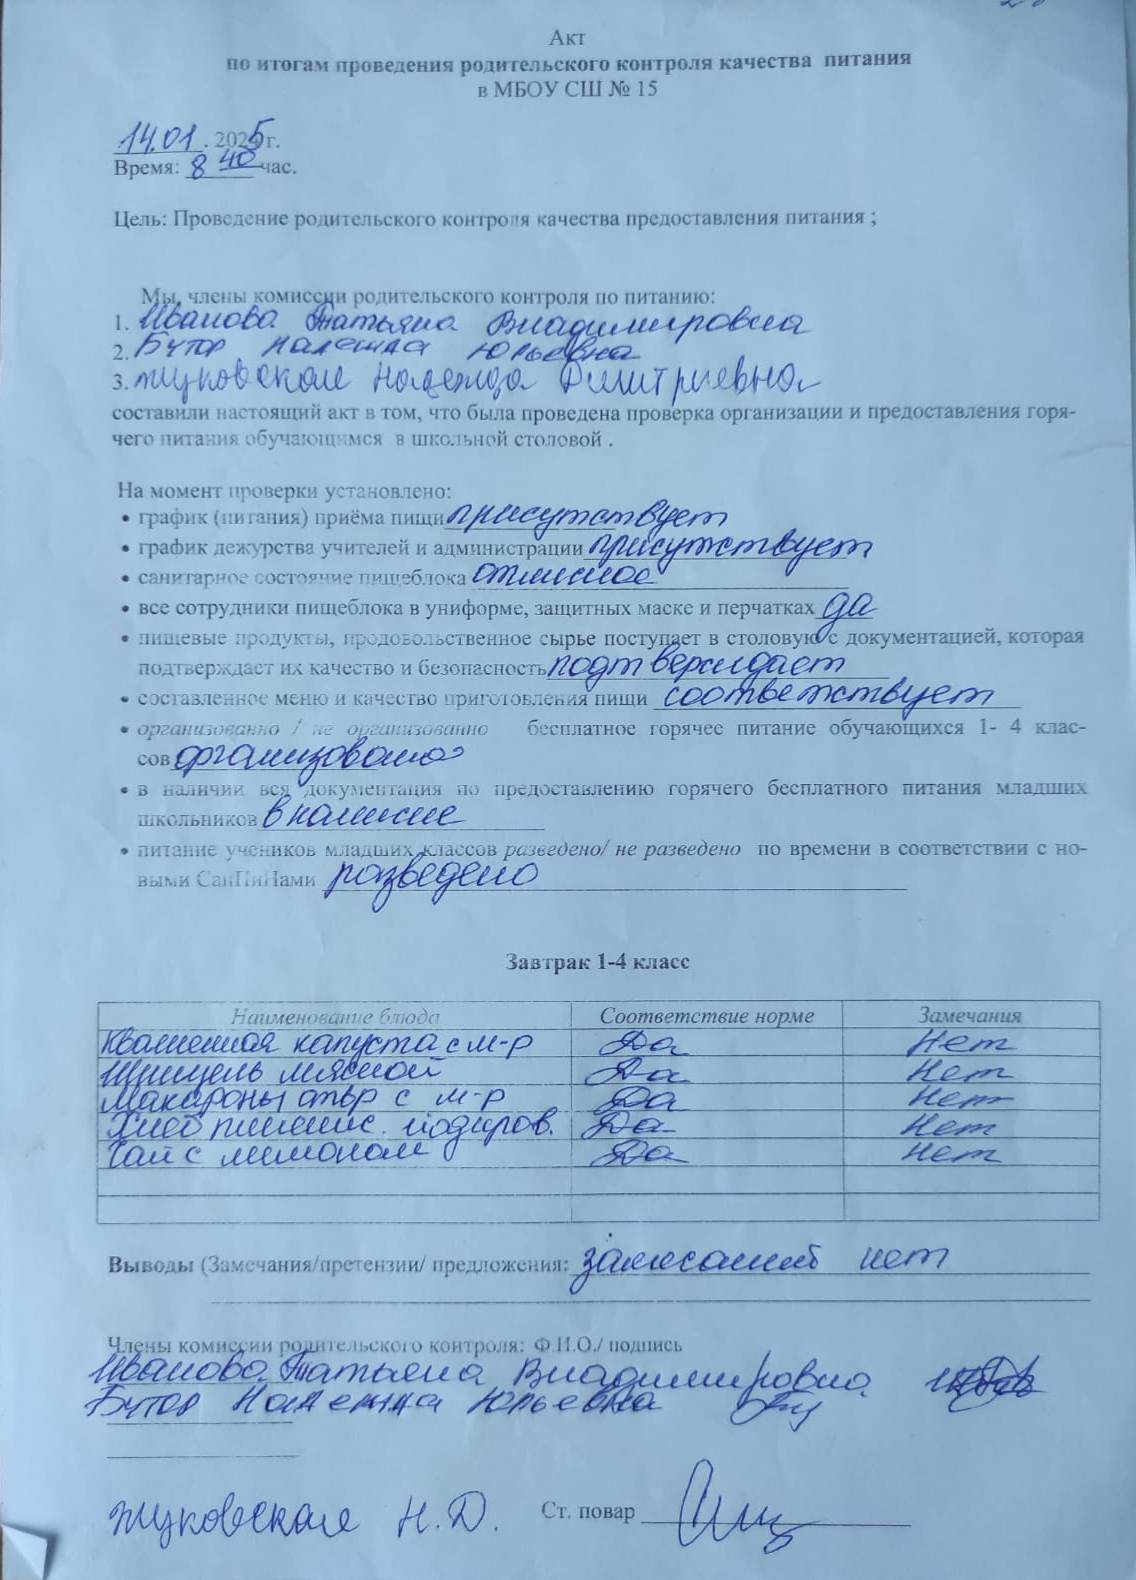 Акт
по итогам проведения родительского контроля качества питания
в МБОУ СШ № 15
14.01. 2025г.
Время: 8 40 час.
Цель: Проведение родительского контроля качества предоставления питания ;
Мы, члены комиссии родительского контроля по питанию:
1. Иванова Татьяна Владимировна
2. Бутор Надежда Юрьевна
3. Жуковская Надежда Дмитриевна
составили настоящий акт в том, что была проведена проверка организации и предоставления горя-
чего питания обучающимся в школьной столовой .
На момент проверки установлено:
• график (питания) приёма пищи присутствует
• график дежурства учителей и администрации присутствует
• санитарное состояние пищеблока отличное
• все сотрудники пищеблока в униформе, защитных маске и перчатках да
• пищевые продукты, продовольственное сырье поступает в столовую с документацией, которая
подтверждает их качество и безопасность подтверждает
• составленное меню и качество приготовления пищи соответствует
• организованно / не организованно бесплатное горячее питание обучающихся 1- 4 клас-
сов организовано
• в наличии вся документация по предоставлению горячего бесплатного питания младших
школьников в наличие
• питание учеников младших классов разведено/ не разведено по времени в соответствии с но-
выми СанПиНами разведено
Завтрак 1-4 класс
Наименование блюда Соответствие норме Замечания
Квашенная капуста с м-р Да Нет
Шницель мясной Да Нет
Макароны отвр с м-р Да Нет
Хлеб пшенис. йодиров. Да Нет
Чай с лимоном Да Нет
Выводы (Замечания/претензии/ предложения: замечаний нет
Члены комиссии родительского контроля: Ф.И.О./ подпись
Иванова Татьяна Владимировна
Бутор Надежда Юрьевна
Жуковская Н.Д. Ст. повар